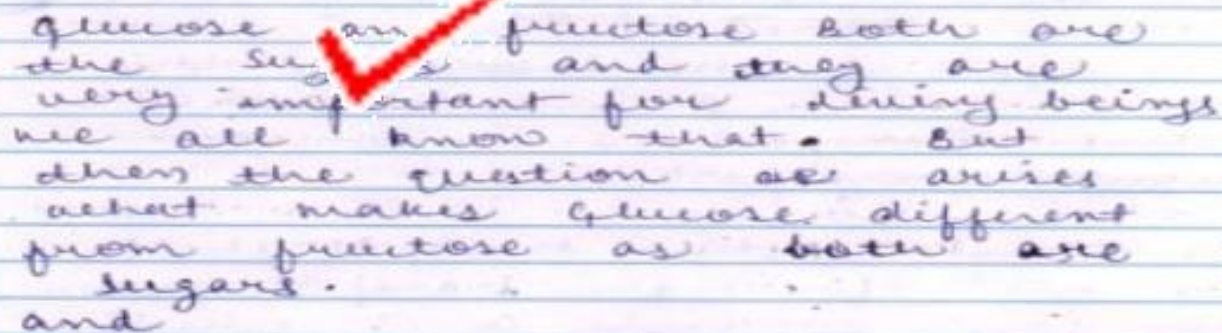 Glucose an fructose Both are
the Sugars and they are
very important for living beings
we all know that. But
then the question as arises
what makes Glucose different
from fructose as both are
sugars.
and